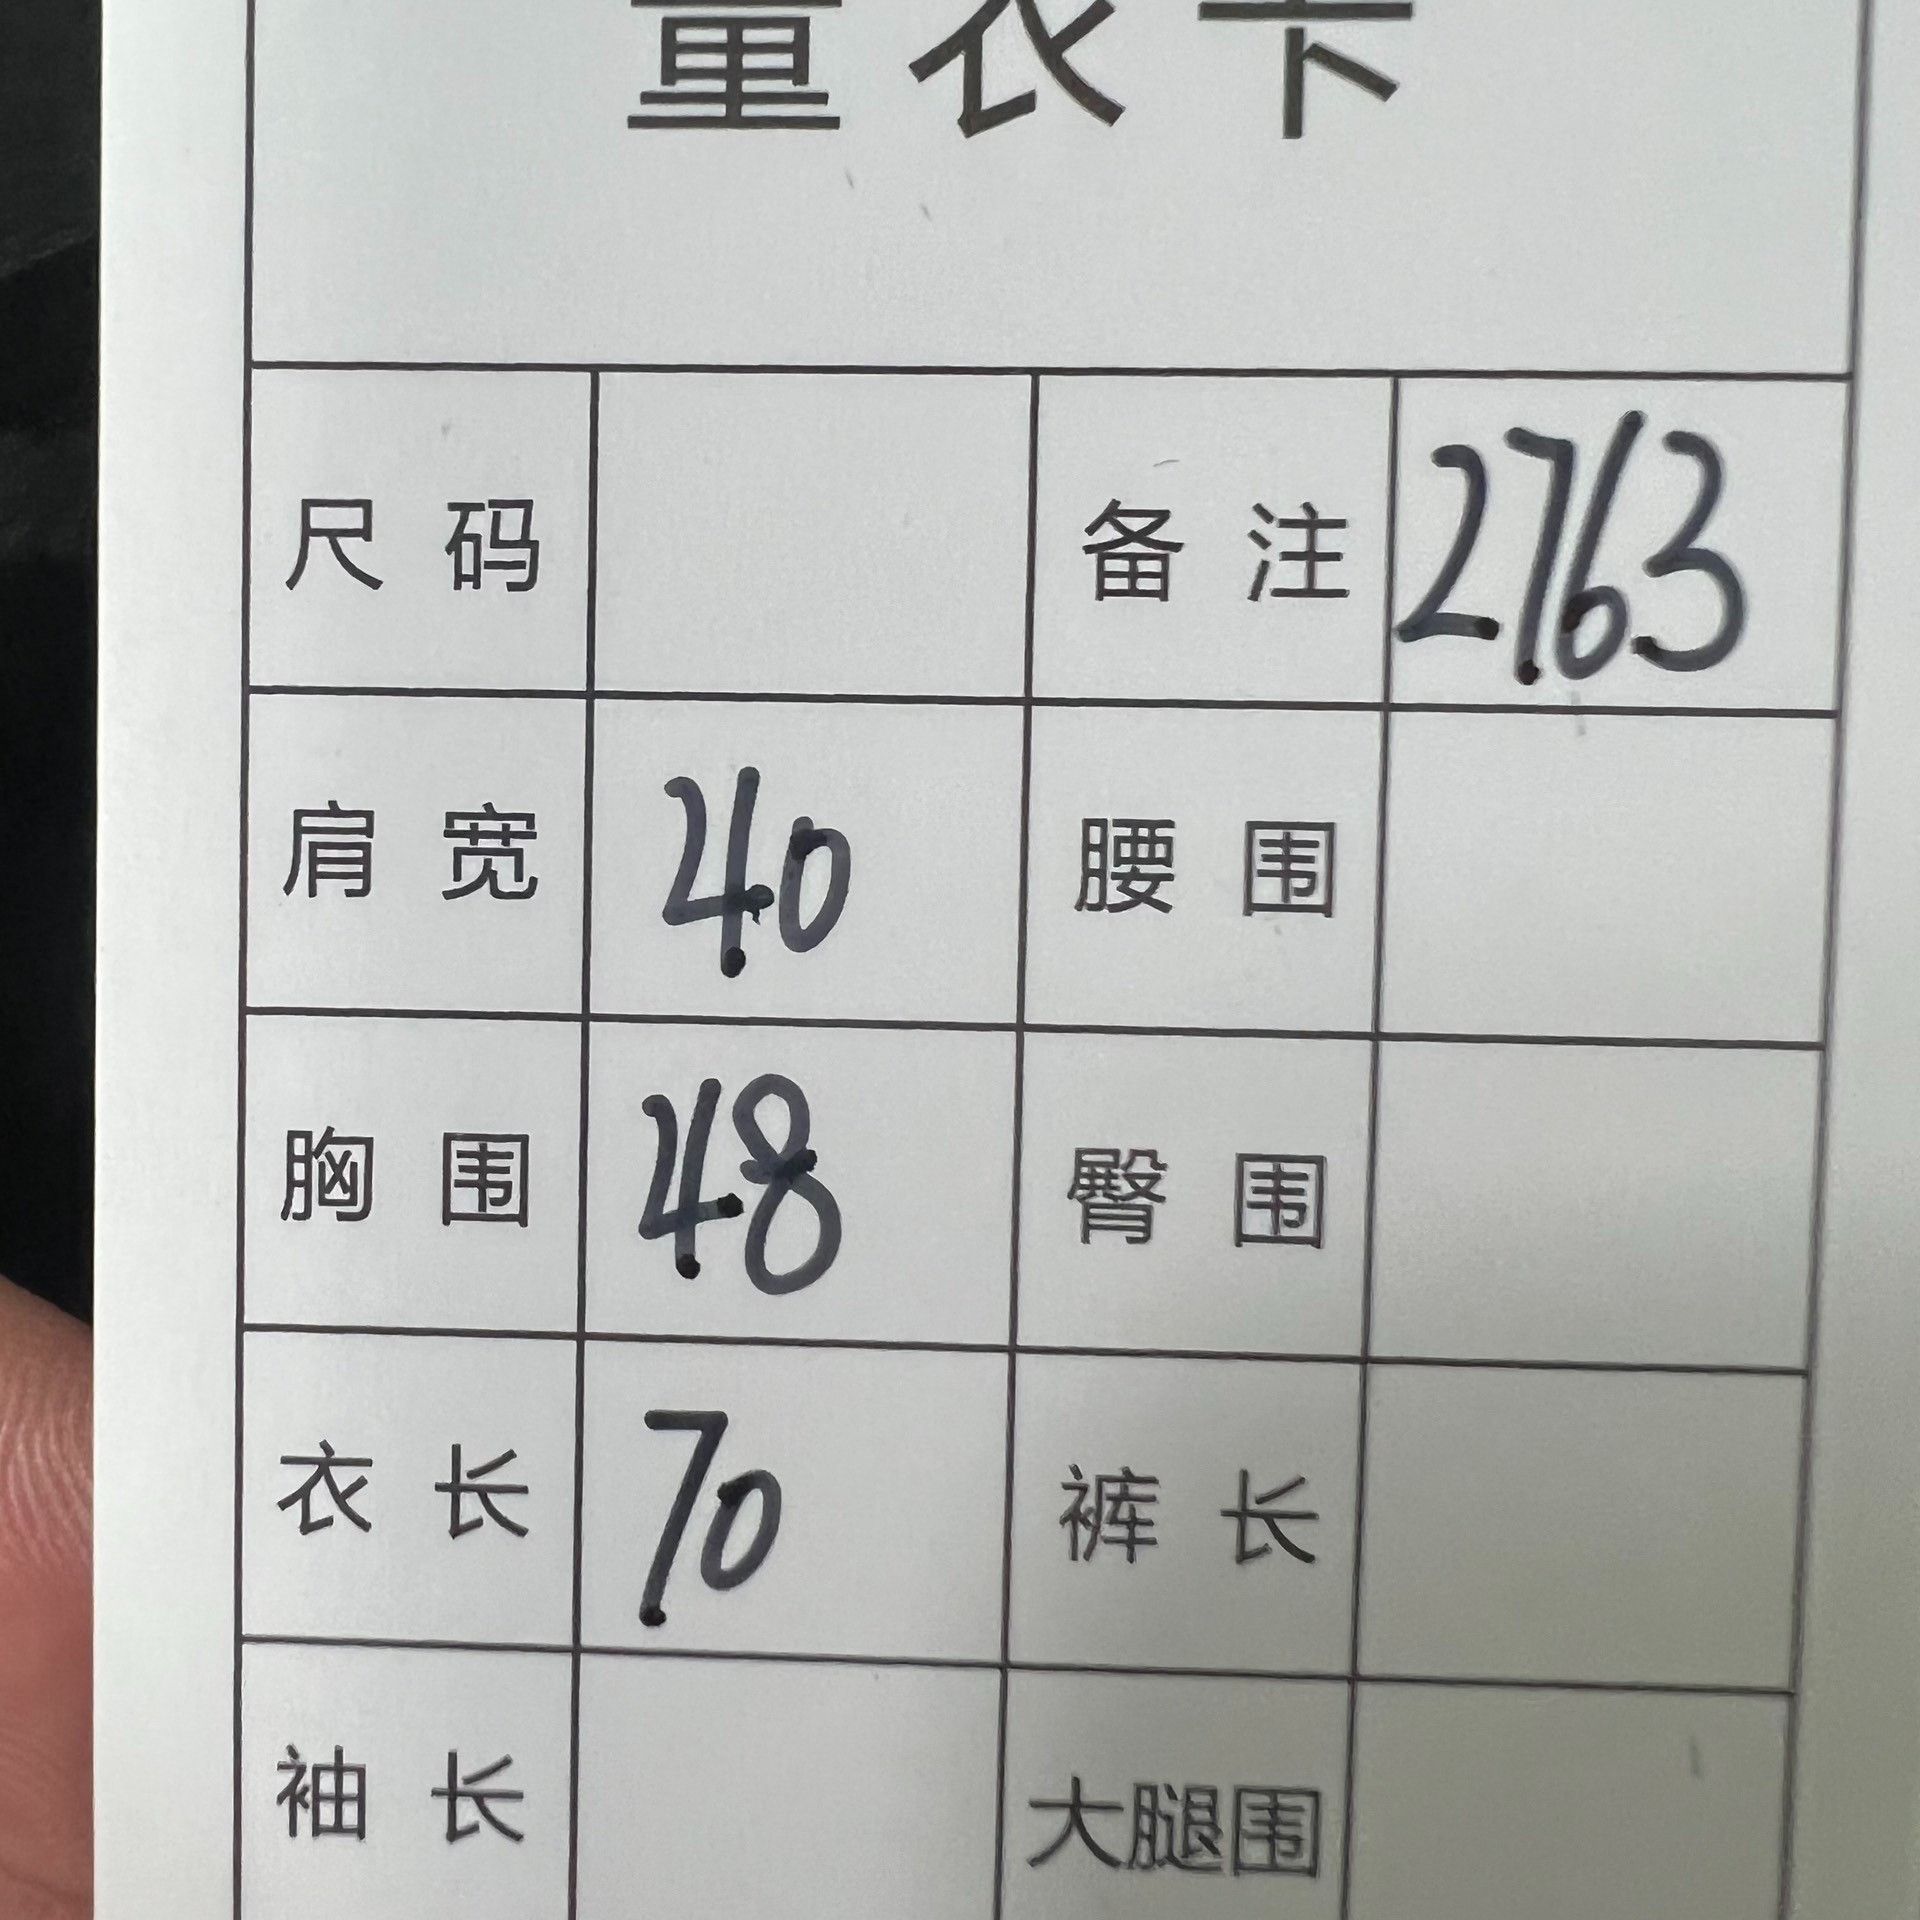 量衣卡
尺码 备注 2763
肩宽 40 腰围
胸围 48 臀围
衣长 70 裤长
袖长 大腿围